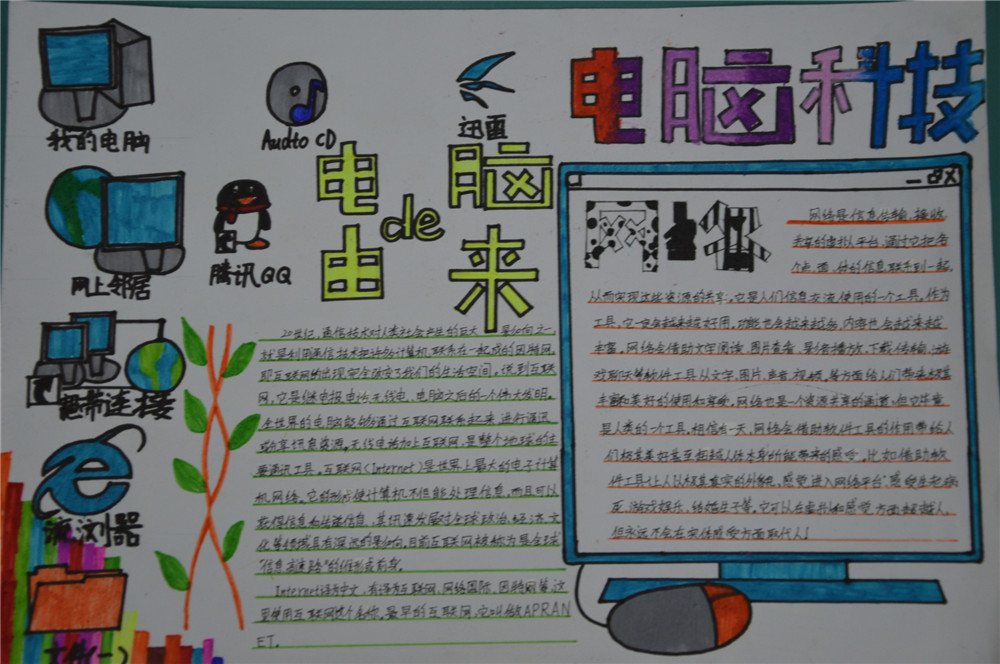 电脑科技
我的电脑
Audto CD
迅雷
网上邻居
腾讯QQ
电脑
de
由来
宽带连接
浏览器
文件(一)
网络
网络是信息传输、接收、
共享的虚拟平台，通过它把各
个点、面、体的信息联系到一起，
从而实现这些资源的共享。它是人们信息交流使用的一个工具。作为
工具，它一定会越来越好用。功能也会越来越多，内容也会越来越
丰富。网络会借助文字阅读、图片查看、影音播放、下载传输、游
戏聊天等软件工具从文字、图片、声音、视频等方面给人们带来极其
丰富和美好的使用和享受。网络也是一个资源共享的通道，但它毕竟
是人类的一个工具，相信有一天，网络会借助软件工具的作用带给人
们极其美好甚至超越人体本身所能带来的感受。比如借助软
件工具让人以极其真实的外貌、感觉进入网络平台，感受生老病
死、游戏娱乐、结婚生子等。它可以在虚拟和感受方面超越人，
但永远不会在实体感受方面取代人！
20世纪，通信技术对人类社会产生的巨大影响之一，
就是利用通信技术把许多计算机联系在一起成的因特网，
即互联网的出现完全改变了我们的生活空间。说到互联
网，它是继电报、电话、无线电、电脑之后的一个伟大发明。
全世界的电脑能够通过互联网联系起来，进行通讯
或分享讯息资源。无线电话加上互联网，是整个地球的主
要通讯工具。互联网(Internet)是世界上最大的电子计算
机网络。它的形成使计算机不但能处理信息，而且可以
获得信息和传递信息，其迅速发展对全球政治、经济、文
化等领域具有深远的影响。目前互联网被称为是全球
"信息高速路"的雏形或前身。
Internet译为中文，有译为互联网、网络国际、因特网等，这
里使用互联网这个名称。最早的互联网，它叫做APRAN
ET。